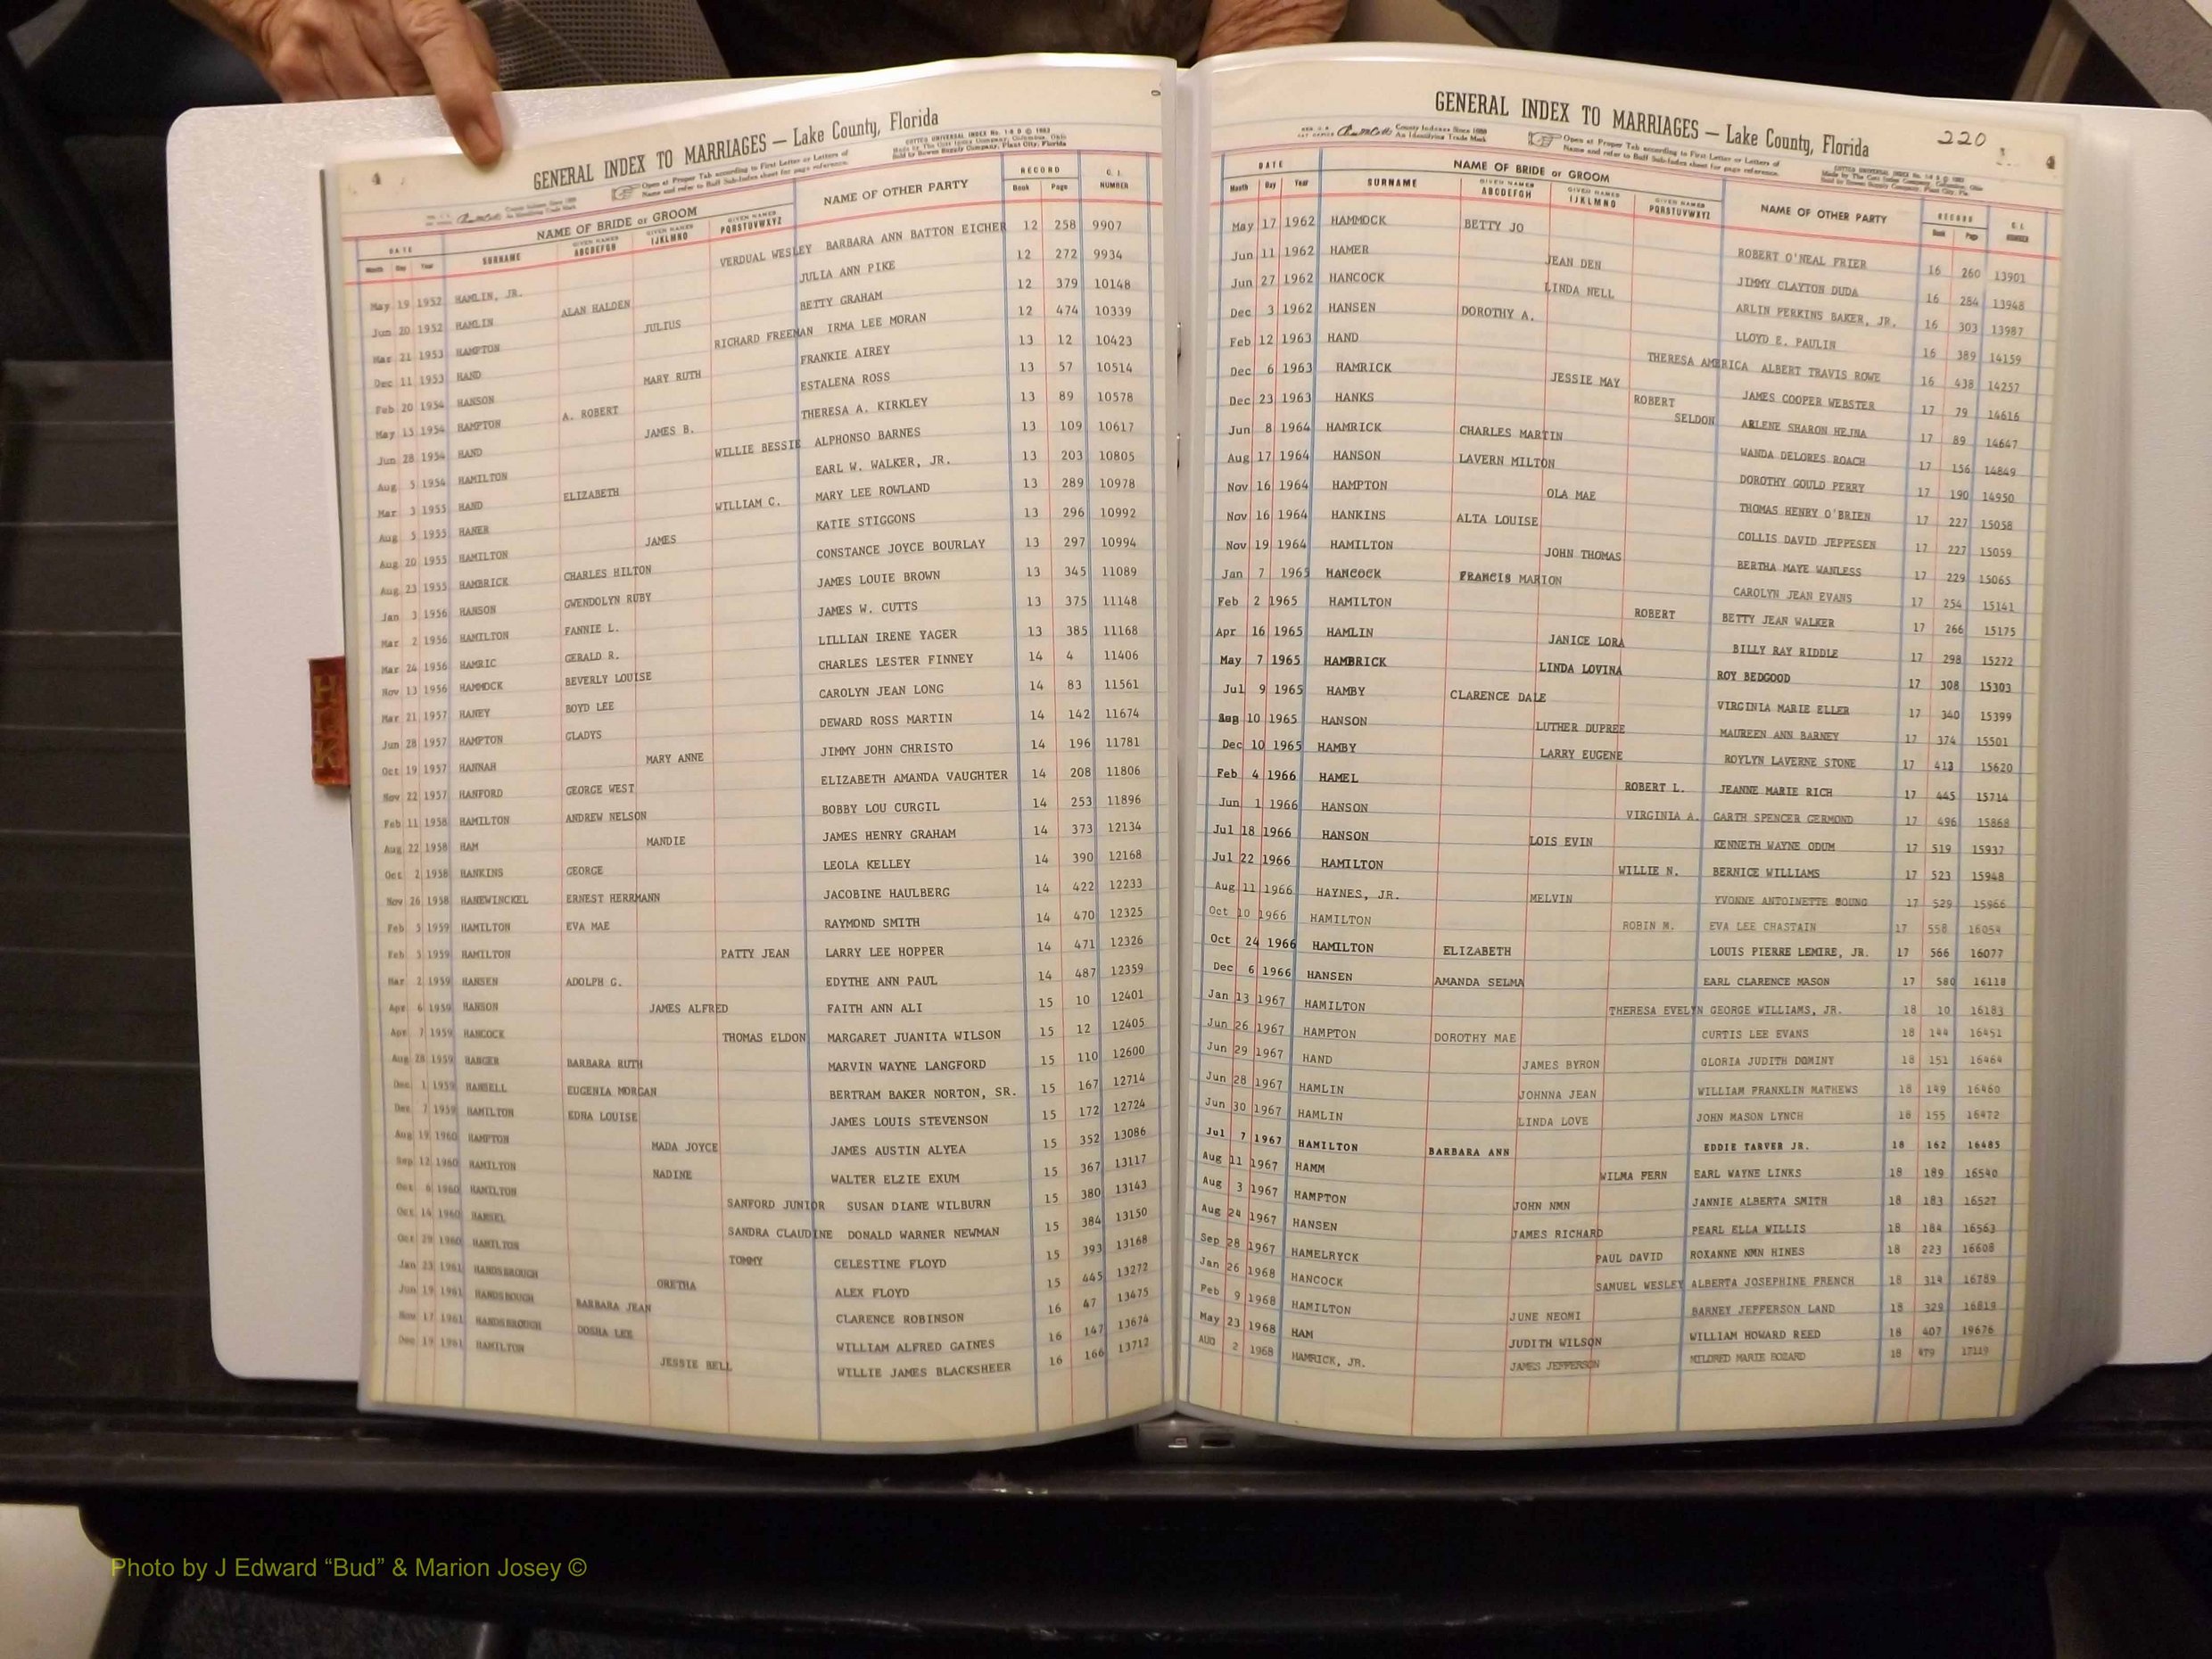 GENERAL INDEX TO MARRIAGES — Lake County, Florida
4
Open at Proper Tab according to First Letter or Letters of
Name and refer to Buff Sub-Index sheet for page reference.
COTT'S UNIVERSAL INDEX No. 1-S D © 1963
Made by The Cott Index Company, Columbus, Ohio
Sold by Bowen Supply Company, Plant City, Florida
DATE NAME OF BRIDE or GROOM NAME OF OTHER PARTY RECORD G. I.
Month Day Year SURNAME GIVEN NAMES ABCDEFGH GIVEN NAMES IJKLMNO GIVEN NAMES PQRSTUVWXYZ Book Page NUMBER
May 19 1952 HAMLIN, JR. VERDUAL WESLEY BARBARA ANN BATTON EICHER 12 258 9907
Jun 20 1952 HAMLIN ALAN HALDEN JULIA ANN PIKE 12 272 9934
Mar 21 1953 HAMPTON JULIUS BETTY GRAHAM 12 379 10148
Dec 11 1953 HAND RICHARD FREEMAN IRMA LEE MORAN 12 474 10339
Feb 20 1954 HANSON MARY RUTH FRANKIE AIREY 13 12 10423
May 13 1954 HAMPTON A. ROBERT ESTALENA ROSS 13 57 10514
Jun 28 1954 HAND JAMES B. THERESA A. KIRKLEY 13 89 10578
Aug 5 1954 HAMILTON WILLIE BESSIE ALPHONSO BARNES 13 109 10617
Mar 3 1955 HAND ELIZABETH EARL W. WALKER, JR. 13 203 10805
Aug 5 1955 HANER WILLIAM C. MARY LEE ROWLAND 13 289 10978
Aug 20 1955 HAMILTON JAMES KATIE STIGGONS 13 296 10992
Aug 23 1955 HAMBRICK CHARLES HILTON CONSTANCE JOYCE BOURLAY 13 297 10994
Jan 3 1956 HANSON GWENDOLYN RUBY JAMES LOUIE BROWN 13 345 11089
Mar 2 1956 HAMILTON FANNIE L. JAMES W. CUTTS 13 375 11148
Mar 24 1956 HAMRIC GERALD R. LILLIAN IRENE YAGER 13 385 11168
Nov 13 1956 HAMMOCK BEVERLY LOUISE CHARLES LESTER FINNEY 14 4 11406
Mar 21 1957 HANEY BOYD LEE CAROLYN JEAN LONG 14 83 11561
Jun 28 1957 HAMPTON GLADYS DEWARD ROSS MARTIN 14 142 11674
Oct 19 1957 HANNAH MARY ANNE JIMMY JOHN CHRISTO 14 196 11781
Nov 22 1957 HANFORD GEORGE WEST ELIZABETH AMANDA VAUGHTER 14 208 11806
Feb 11 1958 HAMILTON ANDREW NELSON BOBBY LOU CURGIL 14 253 11896
Aug 22 1958 HAM MANDIE JAMES HENRY GRAHAM 14 373 12134
Oct 2 1958 HANKINS GEORGE LEOLA KELLEY 14 390 12168
Nov 26 1958 HANEWINCKEL ERNEST HERRMANN JACOBINE HAULBERG 14 422 12233
Feb 5 1959 HAMILTON EVA MAE RAYMOND SMITH 14 470 12325
Feb 5 1959 HAMILTON PATTY JEAN LARRY LEE HOPPER 14 471 12326
Mar 2 1959 HANSEN ADOLPH G. EDYTHE ANN PAUL 14 487 12359
Apr 6 1959 HANSON JAMES ALFRED FAITH ANN ALI 15 10 12401
Apr 7 1959 HANCOCK THOMAS ELDON MARGARET JUANITA WILSON 15 12 12405
Aug 28 1959 HANGER BARBARA RUTH MARVIN WAYNE LANGFORD 15 110 12600
Dec 1 1959 HANSELL EUGENIA MORGAN BERTRAM BAKER NORTON, SR. 15 167 12714
Dec 7 1959 HAMILTON EDNA LOUISE JAMES LOUIS STEVENSON 15 172 12724
Aug 19 1960 HAMPTON MADA JOYCE JAMES AUSTIN ALYEA 15 352 13086
Sep 12 1960 HAMILTON NADINE WALTER ELZIE EXUM 15 367 13117
Oct 6 1960 HAMILTON SANFORD JUNIOR SUSAN DIANE WILBURN 15 380 13143
Oct 14 1960 HANSEL SANDRA CLAUDINE DONALD WARNER NEWMAN 15 384 13150
Oct 29 1960 HAMILTON TOMMY CELESTINE FLOYD 15 393 13168
Jan 23 1961 HANDSBROUGH ORETHA ALEX FLOYD 15 445 13272
Jun 19 1961 HANDSBOUGH BARBARA JEAN CLARENCE ROBINSON 16 47 13475
Nov 17 1961 HANDSBROUGH DOSHA LEE WILLIAM ALFRED GAINES 16 147 13674
Dec 19 1961 HAMILTON JESSIE BELL WILLIE JAMES BLACKSHEER 16 166 13712
GENERAL INDEX TO MARRIAGES — Lake County, Florida
220
4
County Indexes Since 1888
An Identifying Trade Mark
Open at Proper Tab according to First Letter or Letters of
Name and refer to Buff Sub-Index sheet for page reference.
DATE NAME OF BRIDE or GROOM NAME OF OTHER PARTY RECORD G. I.
Month Day Year SURNAME GIVEN NAMES ABCDEFGH GIVEN NAMES IJKLMNO GIVEN NAMES PQRSTUVWXYZ Book Page NUMBER
May 17 1962 HAMMOCK BETTY JO ROBERT O'NEAL FRIER 16 260 13901
Jun 11 1962 HAMER JEAN DEN JIMMY CLAYTON DUDA 16 284 13948
Jun 27 1962 HANCOCK LINDA NELL ARLIN PERKINS BAKER, JR. 16 303 13987
Dec 3 1962 HANSEN DOROTHY A. LLOYD E. PAULIN 16 389 14159
Feb 12 1963 HAND THERESA AMERICA ALBERT TRAVIS ROWE 16 438 14257
Dec 6 1963 HAMRICK JESSIE MAY JAMES COOPER WEBSTER 17 79 14616
Dec 23 1963 HANKS ROBERT SELDON ARLENE SHARON HEJNA 17 89 14647
Jun 8 1964 HAMRICK CHARLES MARTIN WANDA DELORES ROACH 17 156 14849
Aug 17 1964 HANSON LAVERN MILTON DOROTHY GOULD PERRY 17 190 14950
Nov 16 1964 HAMPTON OLA MAE THOMAS HENRY O'BRIEN 17 227 15058
Nov 16 1964 HANKINS ALTA LOUISE COLLIS DAVID JEPPESEN 17 227 15059
Nov 19 1964 HAMILTON JOHN THOMAS BERTHA MAYE WANLESS 17 229 15065
Jan 7 1965 HANCOCK FRANCIS MARION CAROLYN JEAN EVANS 17 254 15141
Feb 2 1965 HAMILTON ROBERT BETTY JEAN WALKER 17 266 15175
Apr 16 1965 HAMLIN JANICE LORA BILLY RAY RIDDLE 17 298 15272
May 7 1965 HAMBRICK LINDA LOVINA ROY BEDGOOD 17 308 15303
Jul 9 1965 HAMBY CLARENCE DALE VIRGINIA MARIE ELLER 17 340 15399
10 1965 HANSON LUTHER DUPREE MAUREEN ANN BARNEY 17 374 15501
Dec 10 1965 HAMBY LARRY EUGENE ROYLYN LAVERNE STONE 17 413 15620
Feb 4 1966 HAMEL ROBERT L. JEANNE MARIE RICH 17 445 15714
Jun 1 1966 HANSON VIRGINIA A. GARTH SPENCER GERMOND 17 496 15868
Jul 18 1966 HANSON LOIS EVIN KENNETH WAYNE ODUM 17 519 15937
Jul 22 1966 HAMILTON WILLIE N. BERNICE WILLIAMS 17 523 15948
Aug 11 1966 HAYNES, JR. MELVIN YVONNE ANTOINETTE 17 529 15966
Oct 10 1966 HAMILTON ROBIN M. EVA LEE CHASTAIN 17 558 16054
Oct 24 1966 HAMILTON ELIZABETH LOUIS PIERRE LEMIRE, JR. 17 566 16077
Dec 6 1966 HANSEN AMANDA SELMA EARL CLARENCE MASON 17 580 16118
Jan 13 1967 HAMILTON THERESA EVELYN GEORGE WILLIAMS, JR. 18 10 16183
Jun 26 1967 HAMPTON DOROTHY MAE CURTIS LEE EVANS 18 144 16451
Jun 29 1967 HAND JAMES BYRON GLORIA JUDITH DOMINY 18 151 16464
Jun 28 1967 HAMLIN JOHNNA JEAN WILLIAM FRANKLIN MATHEWS 18 149 16460
Jun 30 1967 HAMLIN LINDA LOVE JOHN MASON LYNCH 18 155 16472
Jul 7 1967 HAMILTON BARBARA ANN EDDIE TARVER JR. 18 162 16485
Aug 11 1967 HAMM WILMA FERN EARL WAYNE LINKS 18 189 16540
Aug 3 1967 HAMPTON JOHN NMN JANNIE ALBERTA SMITH 18 183 16527
Aug 24 1967 HANSEN JAMES RICHARD PEARL ELLA WILLIS 18 184 16563
Sep 28 1967 HAMELRYCK PAUL DAVID ROXANNE NMN HINES 18 223 16608
Jan 26 1968 HANCOCK SAMUEL WESLEY ALBERTA JOSEPHINE FRENCH 18 314 16789
Feb 9 1968 HAMILTON JUNE NEOMI BARNEY JEFFERSON LAND 18 329 16819
May 23 1968 HAM JUDITH WILSON WILLIAM HOWARD REED 18 407 19676
AUG 2 1968 HAMRICK, JR. JAMES JEFFERSON MILDRED MARIE BOZARD 18 479 17119
Photo by J Edward “Bud” & Marion Josey ©